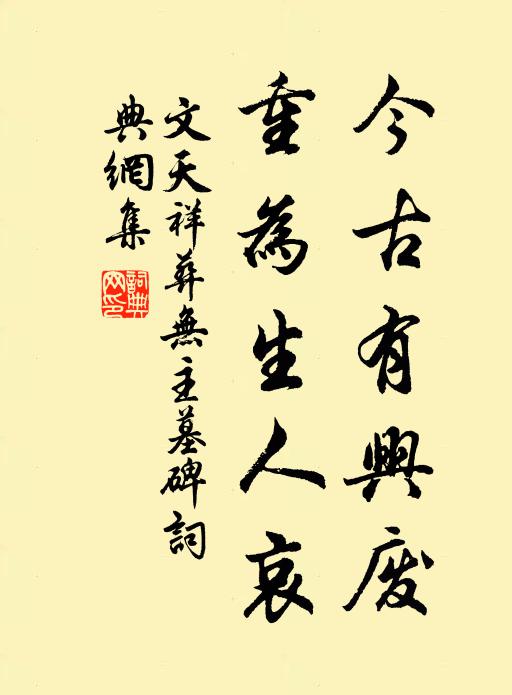 今古有興废
重為生人哀
文天祥葬無主墓碑詞
典網集
詞典網印